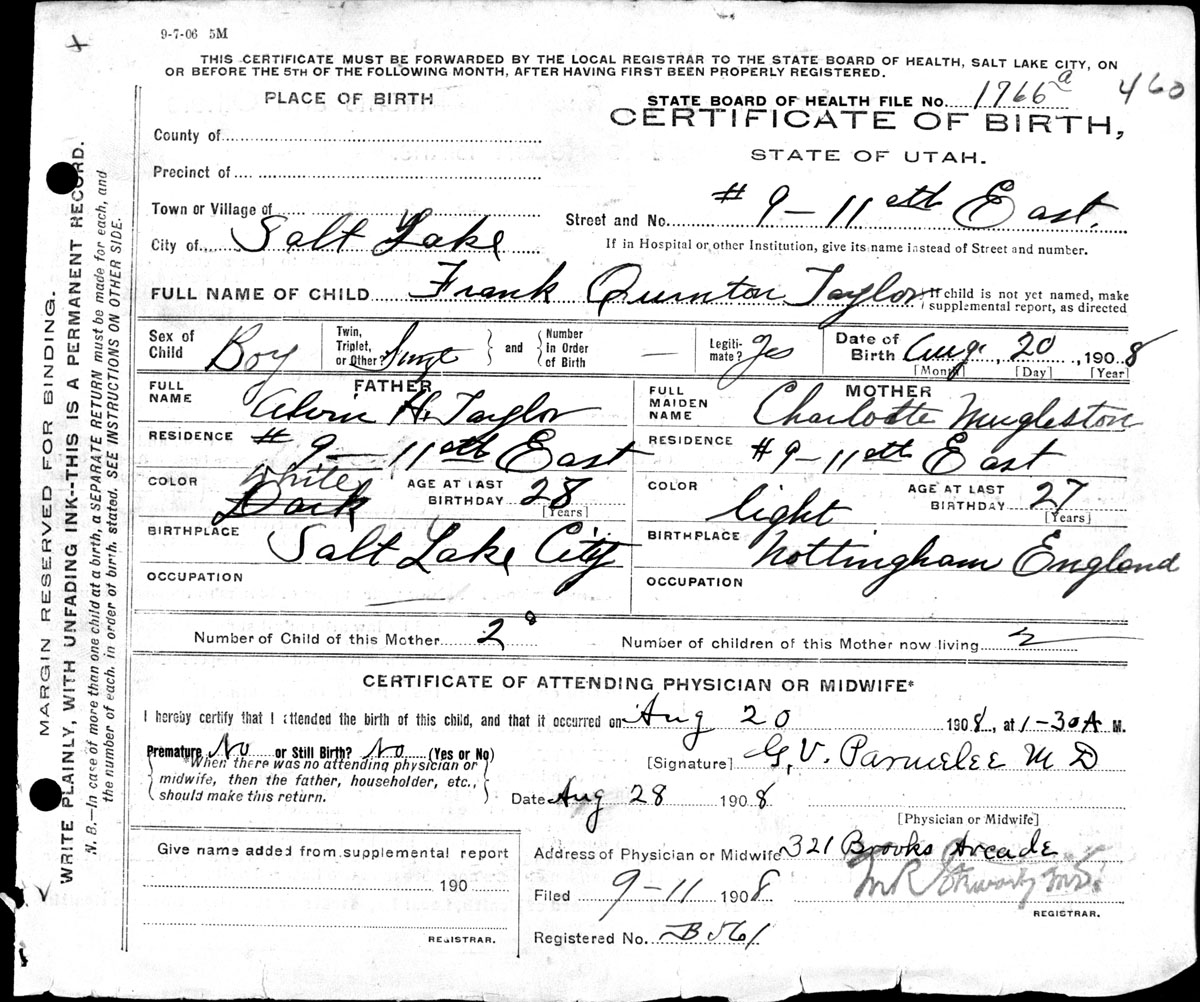 9-7-06 5M
THIS CERTIFICATE MUST BE FORWARDED BY THE LOCAL REGISTRAR TO THE STATE BOARD OF HEALTH, SALT LAKE CITY, ON
OR BEFORE THE 5TH OF THE FOLLOWING MONTH, AFTER HAVING FIRST BEEN PROPERLY REGISTERED.
PLACE OF BIRTH
STATE BOARD OF HEALTH FILE No. 1766 a 460
CERTIFICATE OF BIRTH,
STATE OF UTAH.
County of
Precinct of
Town or Village of
City of Salt Lake
Street and No. # 9 - 11 eth East.
If in Hospital or other Institution, give its name instead of Street and number.
FULL NAME OF CHILD Frank Quinton Taylor
If child is not yet named, make
supplemental report, as directed
Sex of Child Boy
Twin, Triplet, or Other?
and
Number in Order of Birth —
Legiti- mate? Yes
Date of Birth Aug. 20, 1908
[Month] [Day] [Year]
FATHER
FULL NAME H. Taylor
RESIDENCE # 9 - 11 eth East
COLOR white Dark
AGE AT LAST BIRTHDAY 28
[Years]
BIRTHPLACE Salt Lake City
OCCUPATION —
MOTHER
FULL MAIDEN NAME Charlotte Mugleston
RESIDENCE # 9 - 11 eth East
COLOR light
AGE AT LAST BIRTHDAY 27
[Years]
BIRTHPLACE Nottingham England
OCCUPATION
Number of Child of this Mother 2
Number of children of this Mother now living 2
CERTIFICATE OF ATTENDING PHYSICIAN OR MIDWIFE*
I hereby certify that I attended the birth of this child, and that it occurred on Aug 20 1908, at 1-30 A M.
Premature No or Still Birth? No (Yes or No)
*When there was no attending physician or
midwife, then the father, householder, etc.,
should make this return.
[Signature] G. V. Parmelee M D
Date Aug 28 1908
[Physician or Midwife]
Give name added from supplemental report
190
REGISTRAR.
Address of Physician or Midwife 321 Brooks Arcade
Filed 9-11 1908
REGISTRAR.
Registered No. B561
MARGIN RESERVED FOR BINDING.
WRITE PLAINLY, WITH UNFADING INK--THIS IS A PERMANENT RECORD.
N. B.—In case of more than one child at a birth, a SEPARATE RETURN must be made for each, and
the number of each, in order of birth, stated. SEE INSTRUCTIONS ON OTHER SIDE.